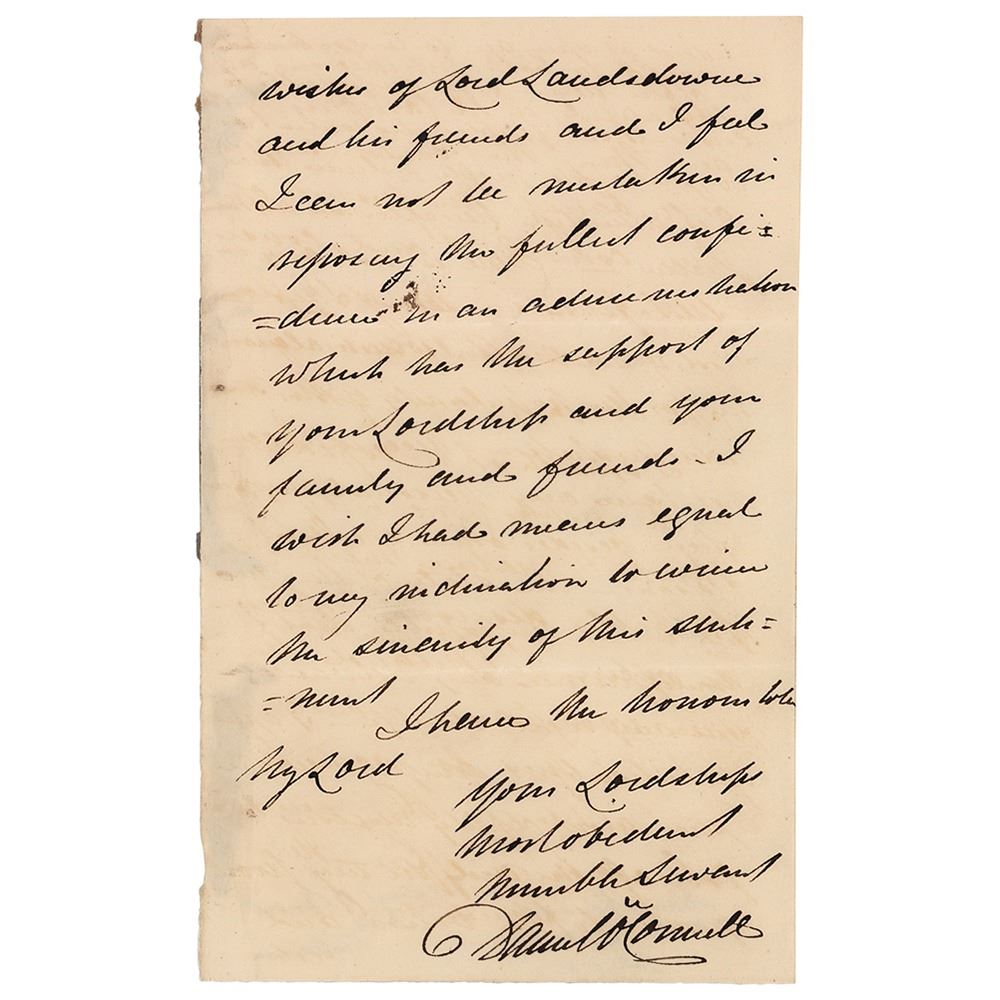 wishes of Lord Landsdowne
and his friends and I feel
I can not be mistaken in
reposing the fullest confi=
=dence in an administration
which has the support of
your Lordship and your
family and friends - I
wish I had means equal
to my inclination to evince
the sincerity of this senti=
=ment
I have the honour to be
My Lord
Your Lordships
Most obedient
Humble Servant
Daniel O'Connell